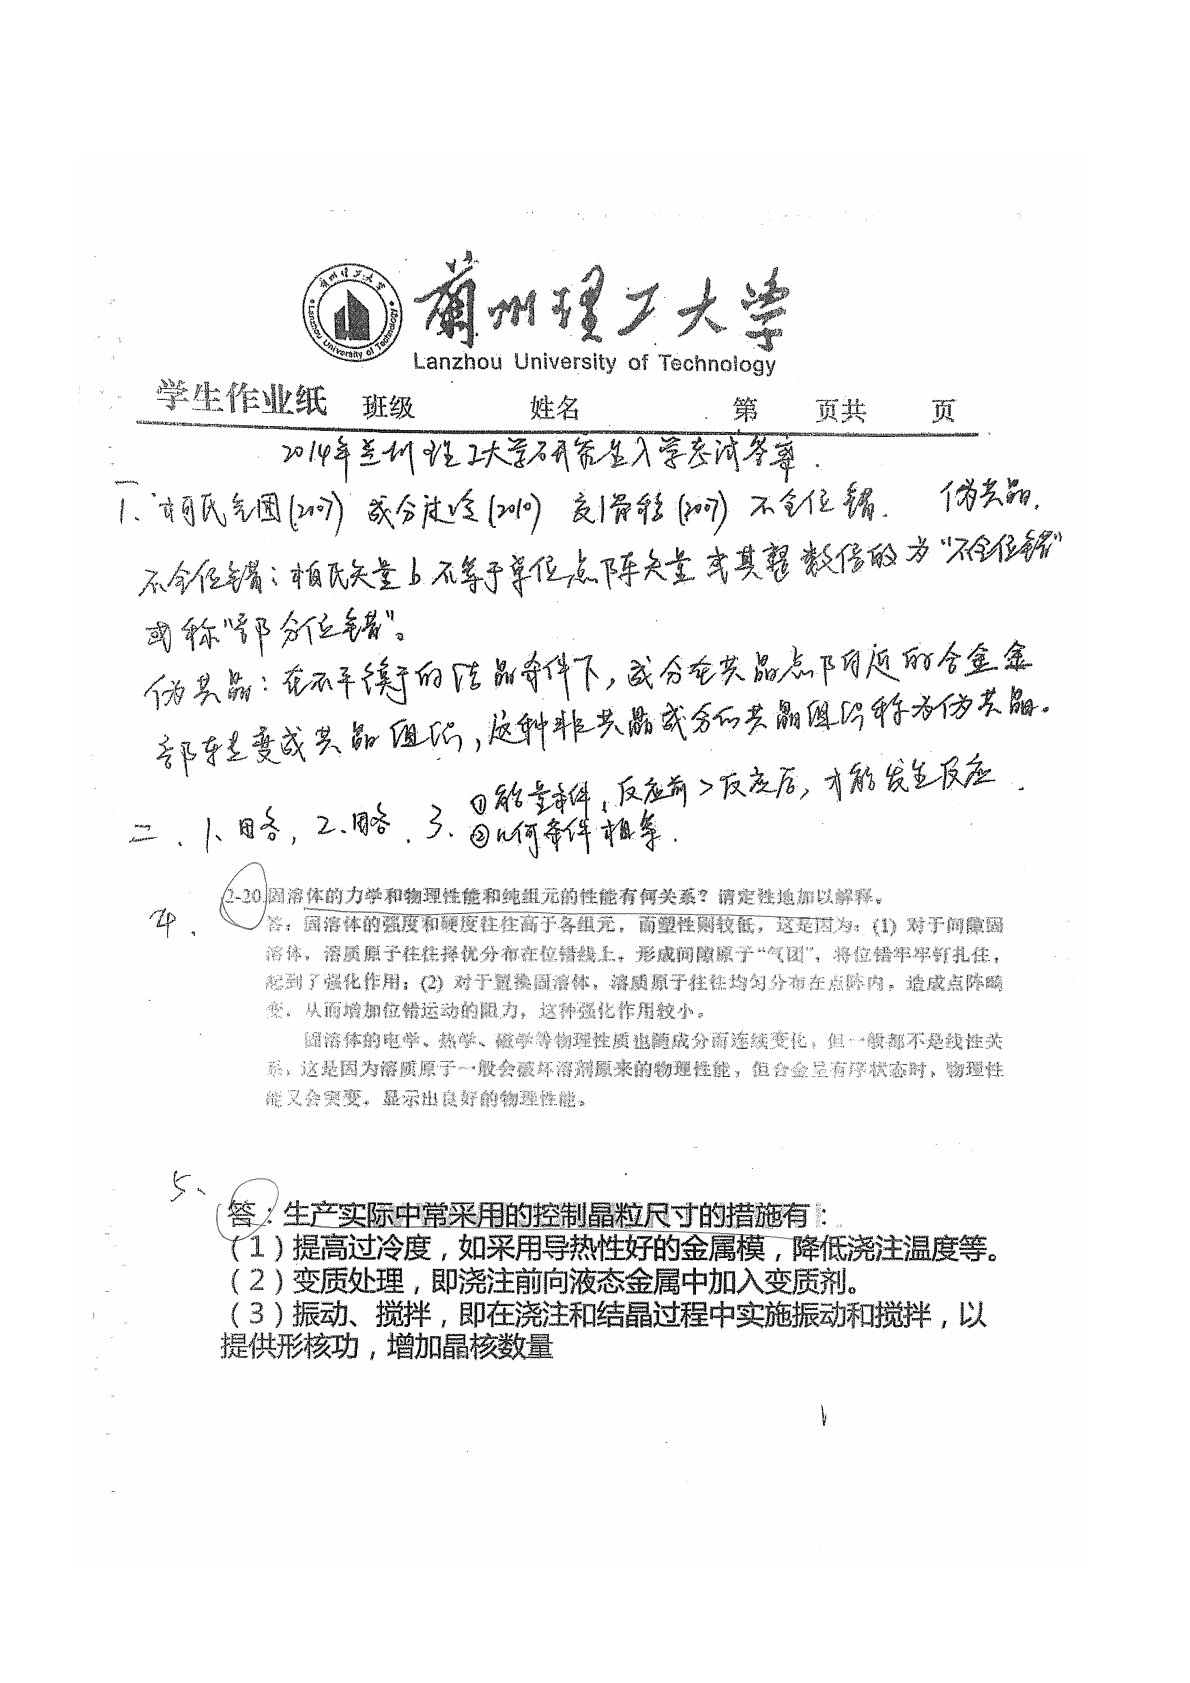 兰州理工大学
Lanzhou University of Technology
蘭州理工大学
Lanzhou University of Technology
学生作业纸 班级 姓名 第 页共 页
2014年兰州理工大学研究生入学考试答案.
一
1. 柯氏气团(2007) 成分过冷(2010) 交滑移(2007) 不全位错. 伪共晶.
不全位错:柏氏矢量b不等于单位点阵矢量或其整数倍的为“不全位错”
或称“部分位错”。
伪共晶:在不平衡的结晶条件下,成分在共晶点附近的合金全
部转变成共晶组织,这种非共晶成分的共晶组织称为伪共晶。
①能量条件,反应前>反应后,才能发生反应.
二.1.略,2.略.3.②几何条件相等.
4.
2-20.固溶体的力学和物理性能和纯组元的性能有何关系?请定性地加以解释。
答:固溶体的强度和硬度往往高于各组元,而塑性则较低,这是因为:(1) 对于间隙固
溶体,溶质原子往往择优分布在位错线上,形成间隙原子“气团”,将位错牢牢钉扎住,
起到了强化作用;(2) 对于置换固溶体,溶质原子往往均匀分布在点阵内,造成点阵畸
变,从而增加位错运动的阻力,这种强化作用较小。
固溶体的电学、热学、磁学等物理性质也随成分而连续变化,但一般都不是线性关
系,这是因为溶质原子一般会破坏溶剂原来的物理性能,但合金呈有序状态时,物理性
能又会突变,显示出良好的物理性能。
5、
答:生产实际中常采用的控制晶粒尺寸的措施有:
(1)提高过冷度,如采用导热性好的金属模,降低浇注温度等。
(2)变质处理,即浇注前向液态金属中加入变质剂。
(3)振动、搅拌,即在浇注和结晶过程中实施振动和搅拌,以
提供形核功,增加晶核数量